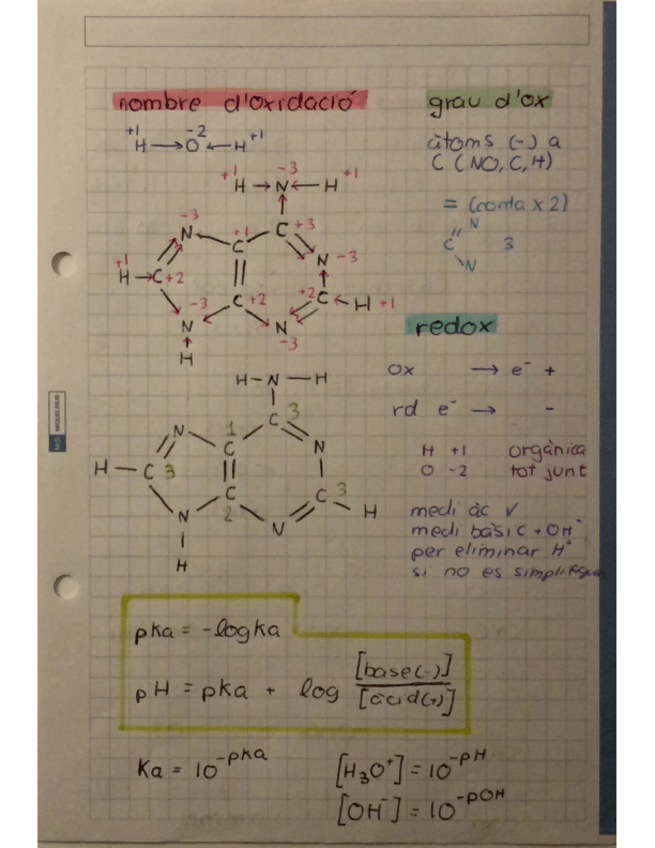 nombre d'oxidació
+1 -2 +1
H → O ← H
+1 -3 +1
H → N ← H
-3 +1 C +3
N C N -3
+1
H → C +2 +2 C ← H +1
-3 C +2
N N
-3
H
H - N - H
1 C 3
N C N
H - C 3 C 3
C H
N 2 N
H
grau d'ox
àtoms (-) a
C (NO, C, H)
= (conta x 2)
N
C 3
N
redox
ox → e⁻ +
rd e⁻ → -
H +1 orgànica
O -2 tot junt
medi àc v
medi bàsic + OH⁻
per eliminar H⁺
si no es simplifiquen
pKa = -logKa
pH = pKa + log [base(-)]
[àcid(+)]
Ka = 10^-pKa
[H₃O⁺] = 10^-pH
[OH⁻] = 10^-pOH